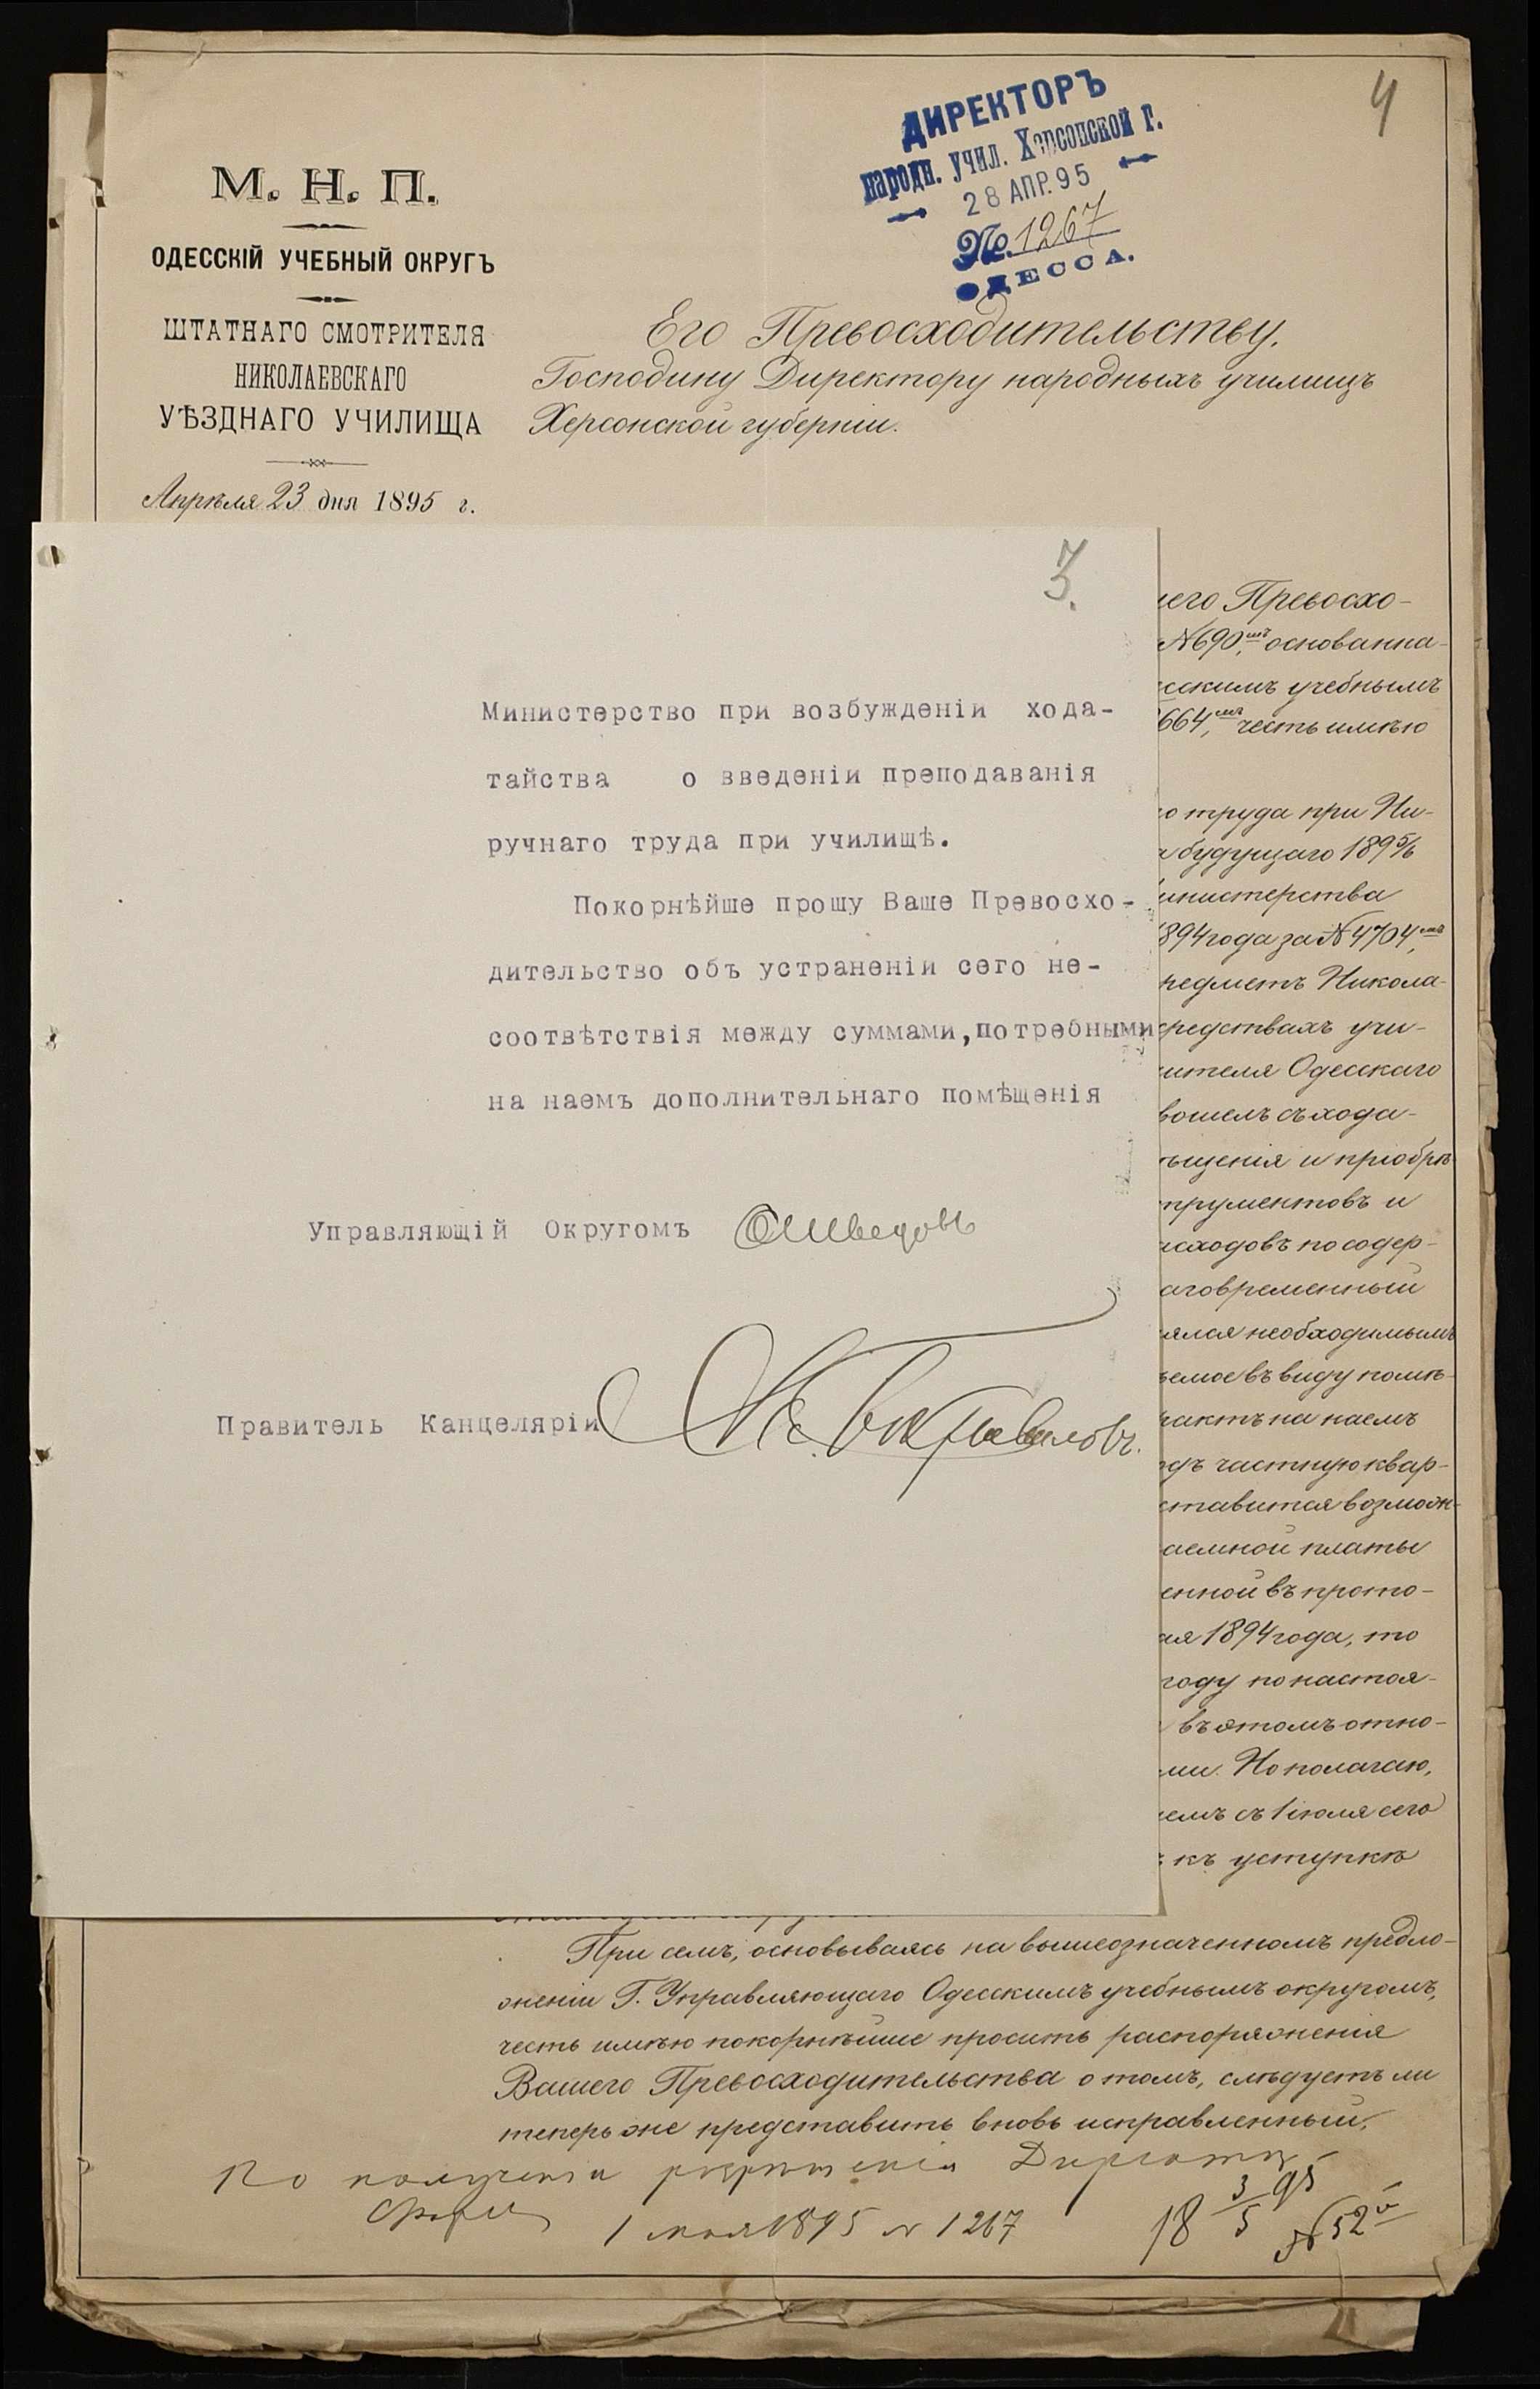 4
ДИРЕКТОРЪ
народн. учил. Херсонской Г.
28 АПР. 95
№ 1267
ОДЕССА.
М. Н. П.
ОДЕССКІЙ УЧЕБНЫЙ ОКРУГЪ
ШТАТНАГО СМОТРИТЕЛЯ
НИКОЛАЕВСКАГО
УѢЗДНАГО УЧИЛИЩА
Апрѣля 23 дня 1895 г.
Его Превосходительству,
Господину Директору народныхъ училищъ
Херсонской губерніи.
3.
Министерство при возбужденіи хода-
тайства о введеніи преподаванія
ручнаго труда при училищѣ.
Покорнѣйше прошу Ваше Превосхо-
дительство объ устраненіи сего не-
соотвѣтствія между суммами, потребными
на наемъ дополнительнаго помѣщенія
Управляющій Округомъ
Правитель Канцеляріи
его Превосхо-
№690, основанна-
скимъ учебнымъ
664, честь имѣю
о труда при Ни-
будущаго 1895/6
инистерства
894 года за № 4704,
редметъ Никола-
средствахъ учи-
ителя Одесскаго
вошелъ съ хода-
ѣщенія и пріобрѣ
трументовъ и
сходовъ по содер-
аговременный
ялся необходимымъ
емое въ виду помѣ-
рактъ на наемъ
дъ частную квар-
ставится возмож-
аемной платы
енной въ прото-
ая 1894 года, то
году по настоя-
въ этомъ отно-
ми. Но полагаю,
емъ съ 1 іюля сего
къ уступкѣ
При семъ, основываясь на вышеозначенномъ предло-
женіи Г. Управляющаго Одесскимъ учебнымъ округомъ,
честь имѣю покорнѣйше просить распоряженія
Вашего Превосходительства о томъ, слѣдуетъ ли
теперь же представить вновь исправленный,
По полученіи разрѣшенія
1 мая 1895 № 1267
18 3/5 95
№ 52